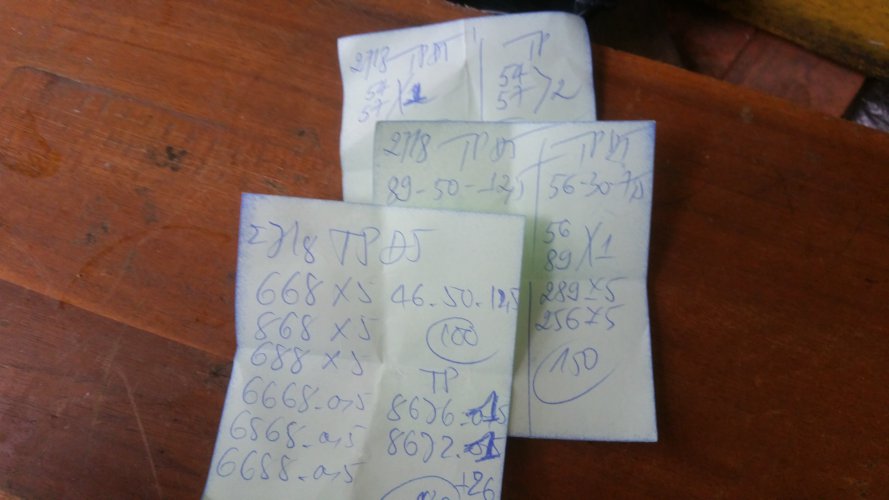 27/8 TP ĐT
54
57 X 1
TP
54
57 > 2
27/8 TP ĐT
89-50-12,5
TP ĐT
56-30-7,5
56
89 X 1
289 x 5
256 x 5
150
27/8 TP ĐT
668 x 5
868 x 5
688 x 5
6668-0,5
6868-0,5
6688-0,5
46-50-12,5
100
TP
8676-1
8672-1
+26